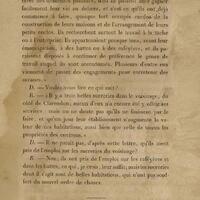 facilement leur vie au dehors, et c'est ce qu'ils ont déjà
commencé à faire, quoique fort occupés encore de la
construction de leurs maisons et de l'arrangement de leurs
petits enclos. Ils recherchent surtout le travail à la tâche
ou à l'entreprise. Ils appartenaient presque tous, avant leur
émancipation, à des hattes ou à des caféyères, et ils parais-
sent peu disposés à continuer de préférence le genre de
travail auquel ils sont accoutumés. Plusieurs d'entre eux
viennent de passer des engagements pour entretenir des
savanes.
D. — Voulez-vous lire en qui suit?
R. — Il y a trois belles sucreries dans le voisinage, du
côté de Clarendon; aucun d'eux n'a encore été y offrir ses
services; mais on ne doute pas qu'ils ne finissent par le
faire, et qu'un jour leur établissement n'augmente la va-
leur de ces habitations, aussi bien que celle de toutes les
propriétés des environs.
D. — Il ne paraît pas, d'après cette lettre, qu'ils aient
pris de l'emploi sur les sucreries du voisinage?
R. — Non; ils ont pris de l'emploi sur les caféyères et
dans les hattes, ce qui, je crois, leur suffit; mais les sucreries
dont il s'agit sont de belles habitations, qui n'ont pas souf-
fert du nouvel ordre de choses.